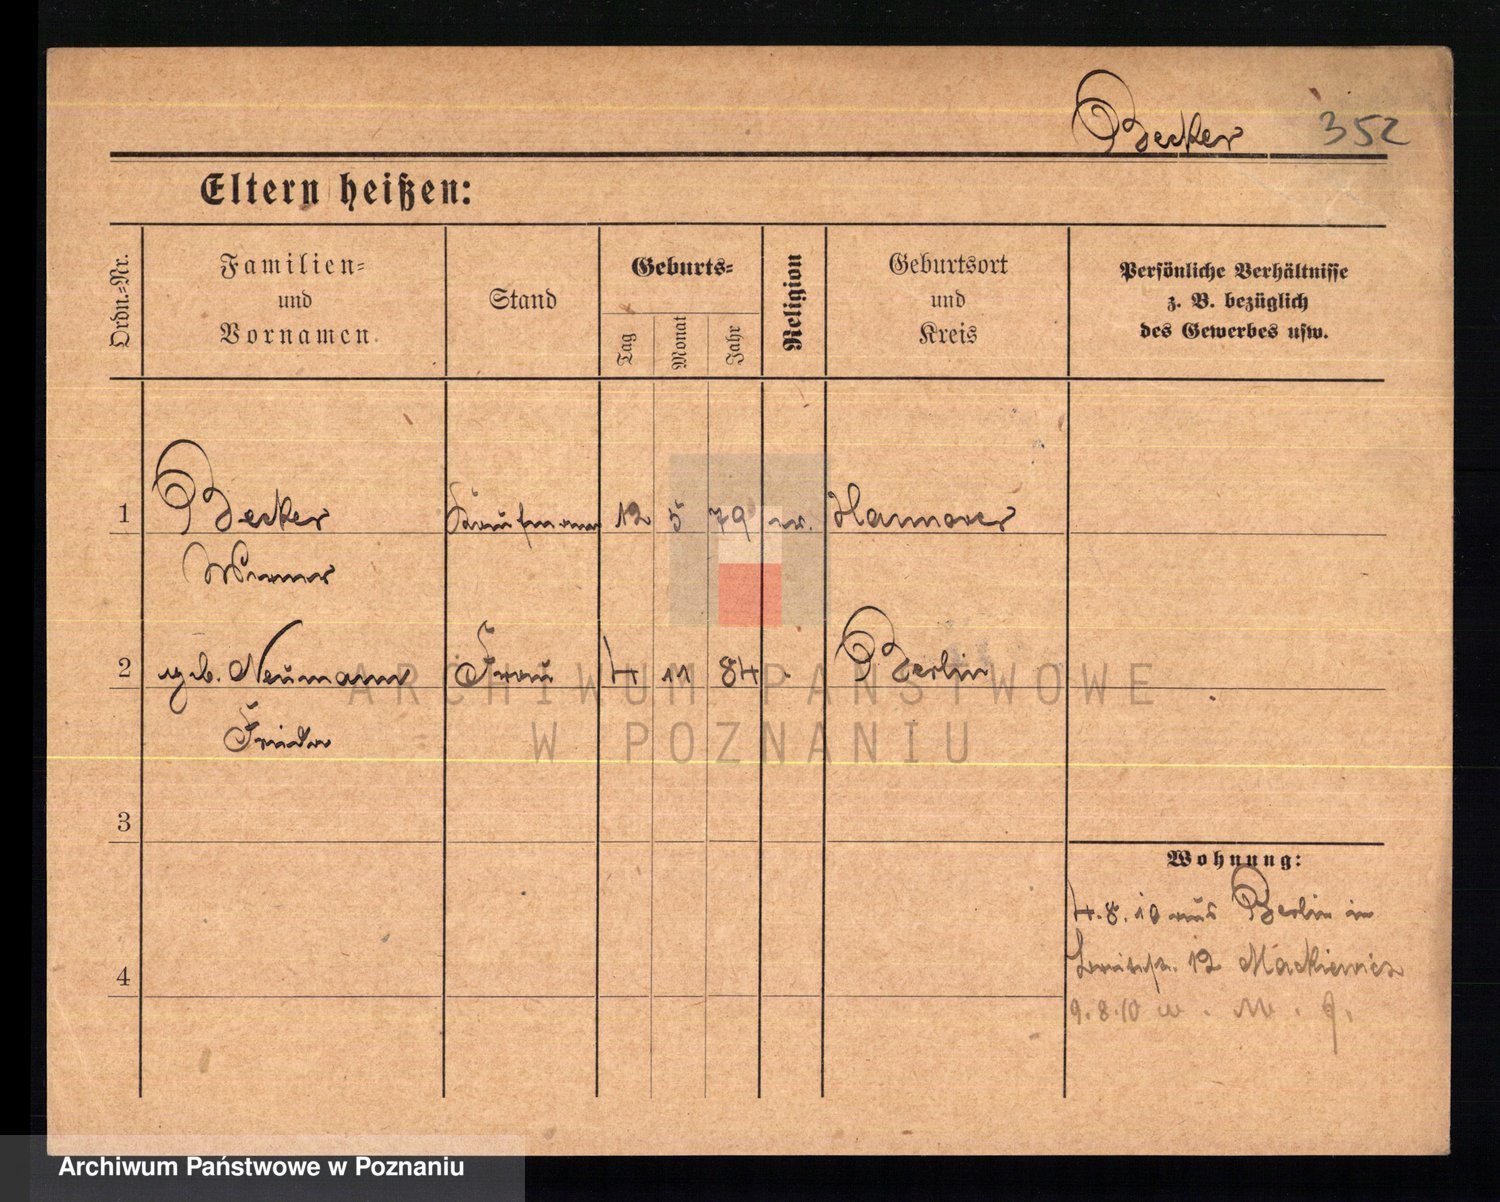 Becker 352
Eltern heißen:
Ordn.-Nr.
Familien-
und
Vornamen
Stand
Geburts-
Tag
Monat
Jahr
Religion
Geburtsort
und
Kreis
Persönliche Verhältnisse
z. B. bezüglich
des Gewerbes usw.
1 Becker Kaufmann 12 5 79 Hannover
Werner
2 geb. Neumann Frau 4 11 84 Berlin
Frieda
3
4
Wohnung:
4.8.10 aus Berlin in
12 Mackiewicz
9.8.10
ARCHIWUM PAŃSTWOWE
W POZNANIU
Archiwum Państwowe w Poznaniu